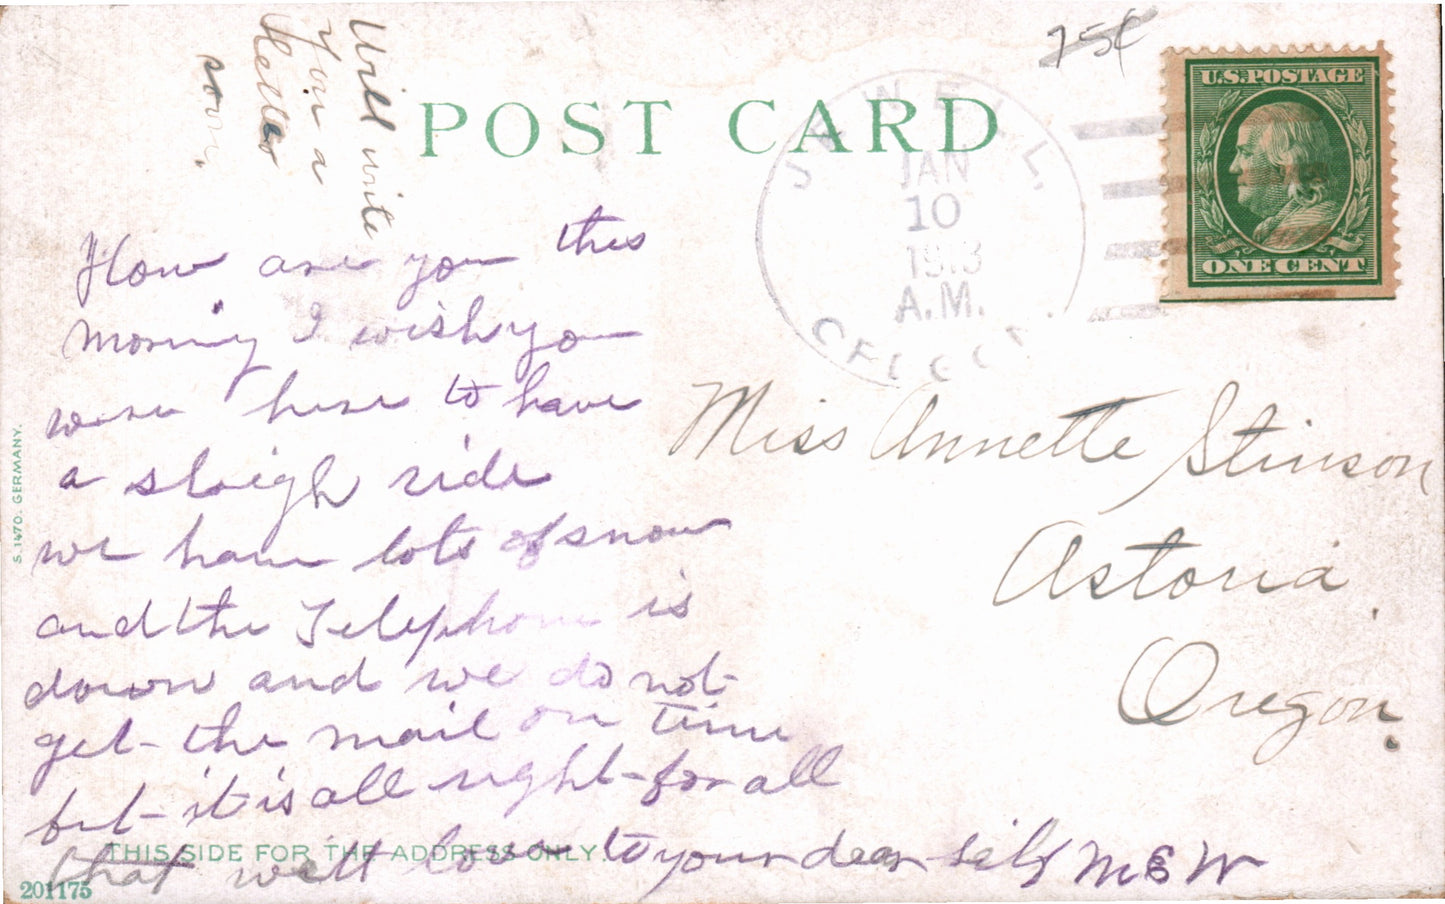 Will write
you a
letter
soon.
75¢
POST CARD
JEWELL
JAN
10
1913
A.M.
OREGON
U.S. POSTAGE
ONE CENT
How are you this
morning I wish you
were here to have
a sleigh ride
we have lots of snow
and the Telephone is
down and we do not
get the mail on time
but it is all right for all
that with love to your dear self M E W
Miss Annette Stinson
Astoria
Oregon.
S. 1470. GERMANY.
THIS SIDE FOR THE ADDRESS ONLY.
201175